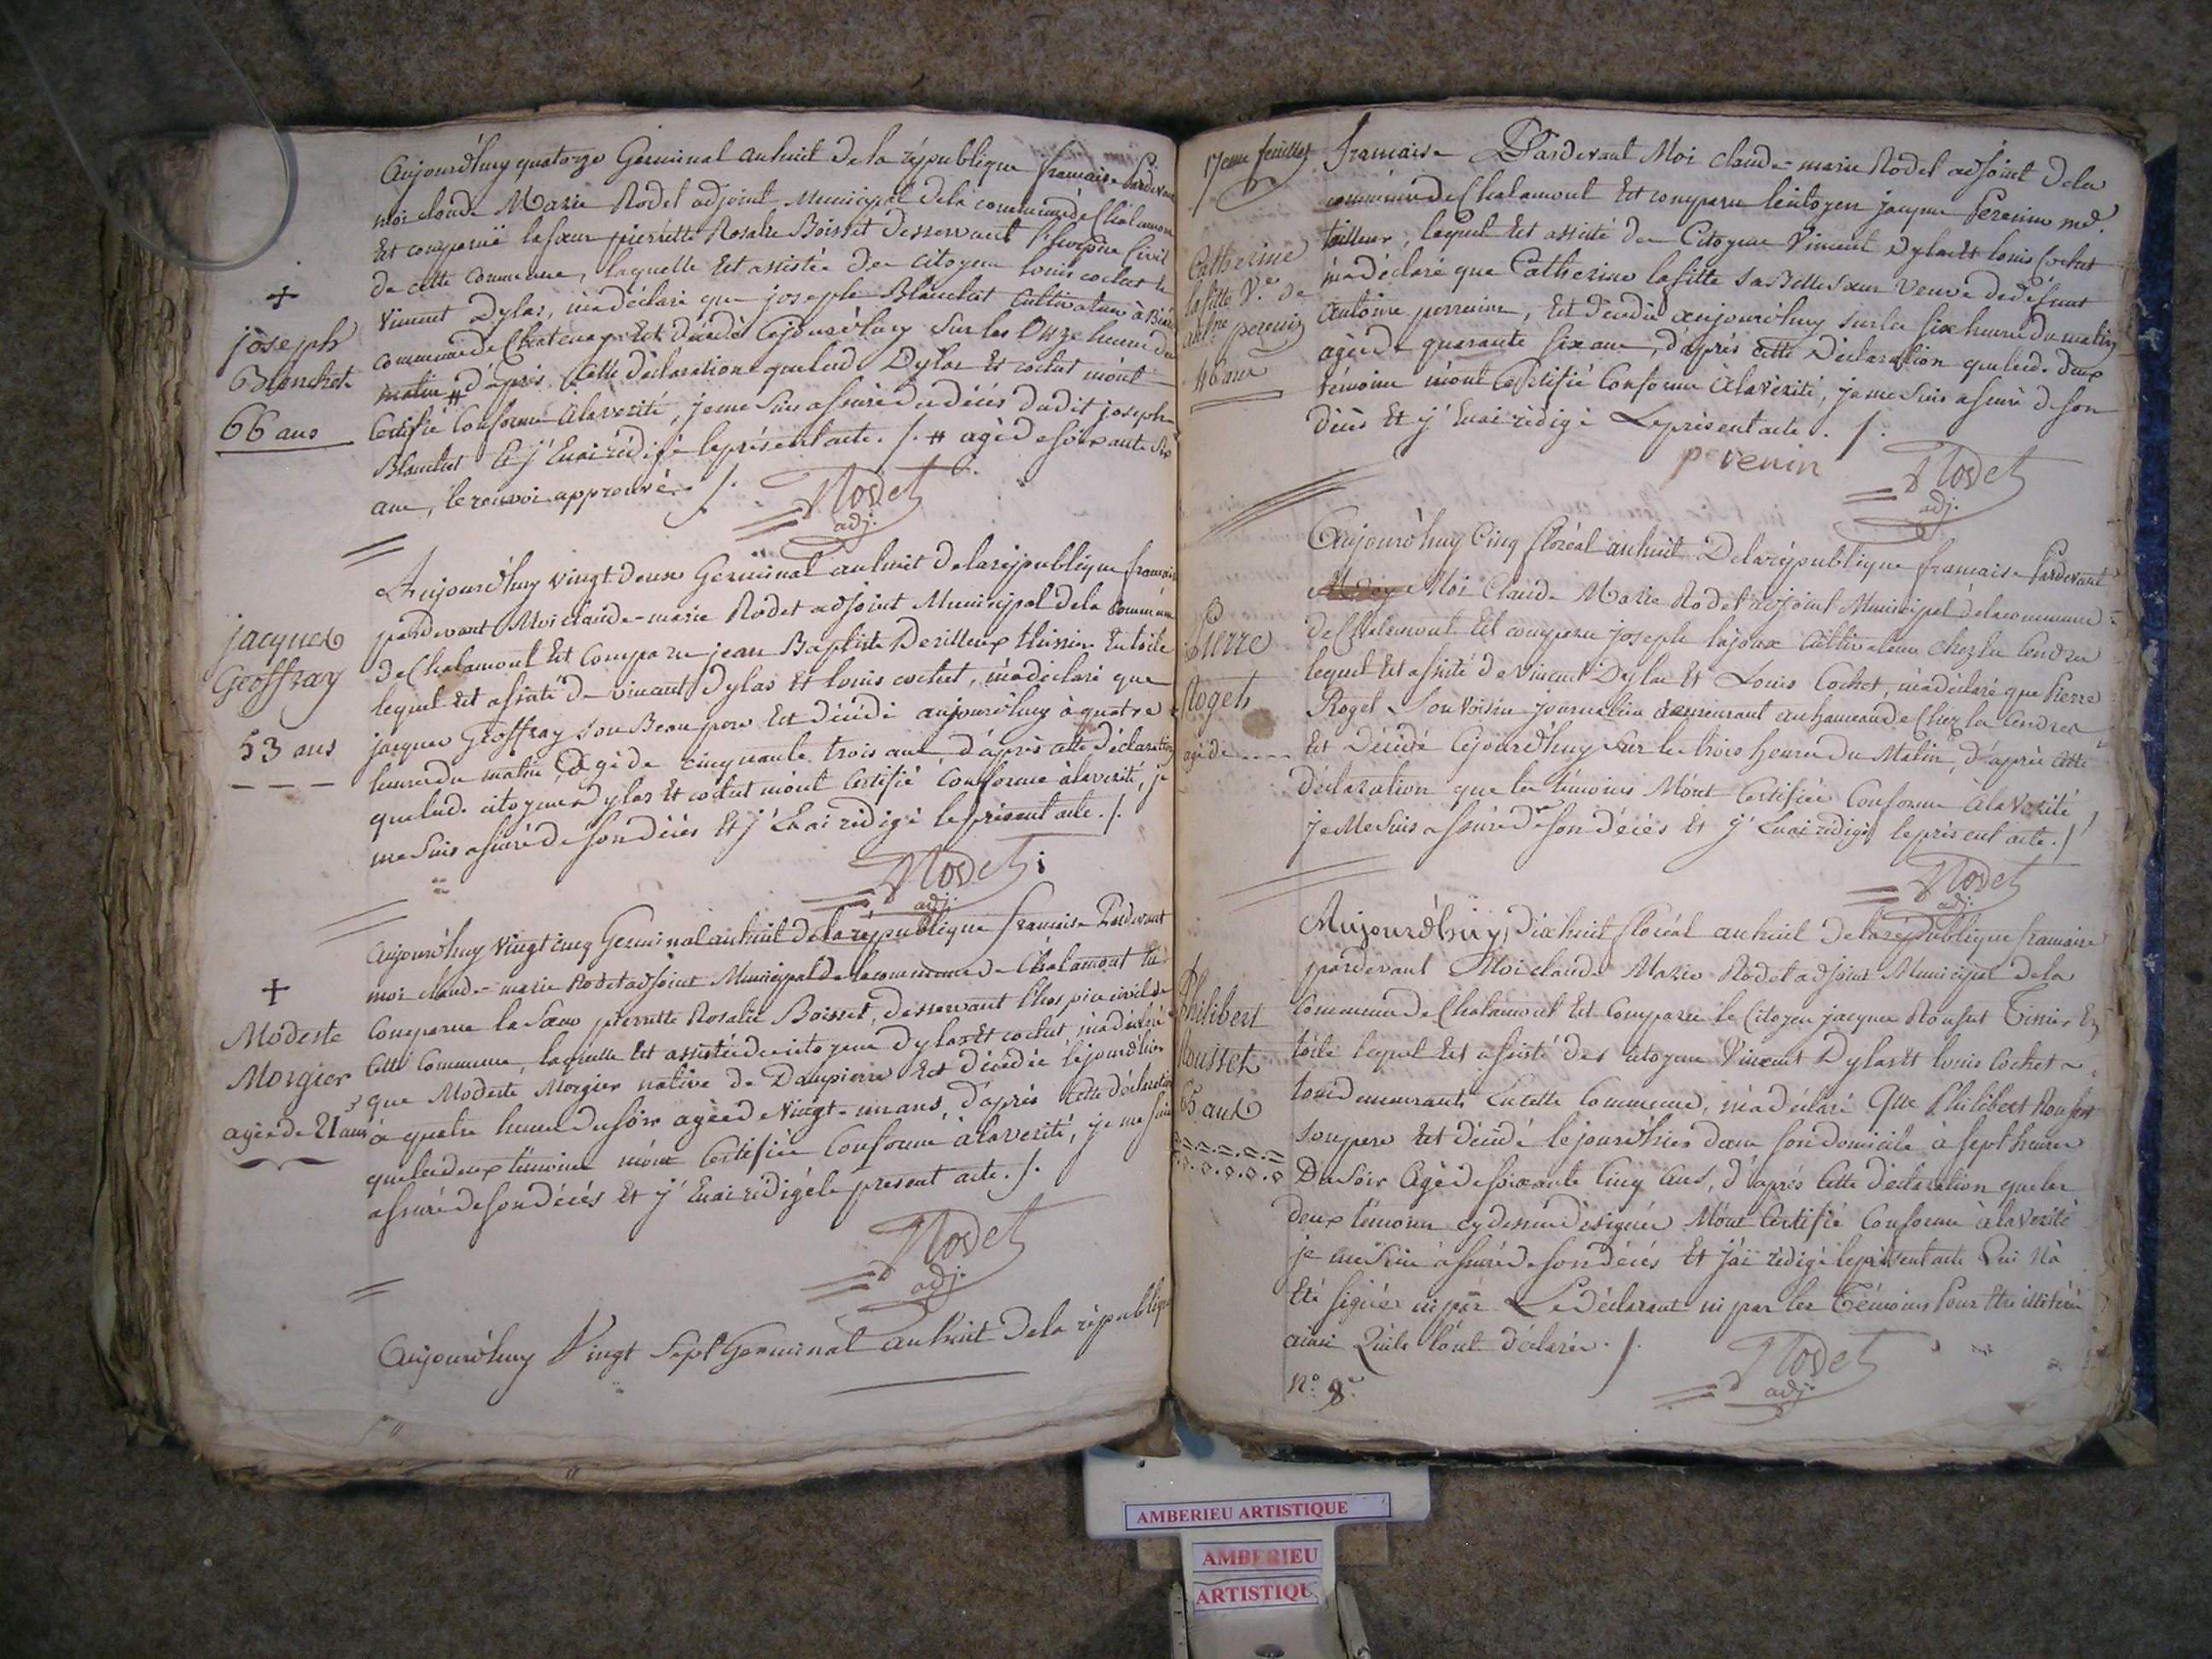 Aujourd'huy quatorze Germinal an huit de la république francaise Pardevant
moi claude Marie Rodet adjoint Municipal de la commune de Chalamont
Est comparue la sœur pierrette Rosalie Boisset desservant l'hospice Civil
de cette commune, laquelle est assistée des citoyens louis cochet et
Vincent Dylas, m'a déclaré que joseph Blanchet Cultivateur à
commune de Chatenay Est décédé Cejourd'huy sur les Onze heures du
matin # d'après cette déclaration que lesd. Dylas Et cochet m'ont
Certifié Conforme à la vérité, je me suis assuré du décès dudit joseph
Blanchet Et j'En ai rédigé le présent acte. /. # agé de soixante six
ans, le renvoi approuvé. /.
Rodet
adj.
+
joseph
Blanchet
66 ans
Aujourd'huy vingt deux Germinal an huit de la république francaise
pardevant Moi claude-marie Rodet adjoint Municipal de la commune
de Chalamont Est Comparu jean Baptiste Derilleux thissier En toile
lequel est assisté de vincent Dylas Et louis cochet, m'a déclaré que
jacques Geoffray son Beau pere Est décédé aujourd'huy à quatre
heures du matin, agé de cinquante trois ans d'après cette déclaration
que lesd. citoyens Dylas Et cochet m'ont Certifié Conforme à la vérité, je
me suis assuré de son décès Et j'En ai rédigé le présent acte. /.
Rodet
adj.
jacques
Geoffray
53 ans
Aujourd'huy vingt cinq Germinal an huit de la république francaise Pardevant
moi claude-marie Rodet adjoint Municipal de la commune de Chalamont Est
Comparue la Sœur pierrette Rosalie Boisset, desservant l'hospice civil de
Cette Commune, laquelle Est assistée des citoyens Dylas Et cochet, m'a déclaré
que Modeste Morgier native de Dampierre Est décédée lejourd'hier
à quatre heures du soir agée de vingt-un ans, d'après cette déclaration
que les deux témoins m'ont Certifiée Conforme à la vérité, je me suis
assuré de son décès Et j'En ai rédigé le present acte. /.
Rodet
adj.
+
Modeste
Morgier
agée de 21 ans
Aujourd'huy Vingt Sept Germinal an huit de la république
17eme feuillet
francaise Pardevant Moi claude-marie Rodet adjoint de la
commune de Chalamont Est comparu le citoyen jacques Perenin md.
tailleur, lequel Est assisté des Citoyens Vincent Dylas Et louis Cochet
m'a déclaré que Catherine lafitte sa Belle Sœur Veuve de défunt
Antoine perrenin, Est décédée aujourd'huy sur les six heures du matin
agée de quarante six ans, d'après cette Déclaration que lesd. deux
témoins m'ont Certifié Conforme à la vérité, je me suis assuré de son
décès Et j'En ai rédigé Le présent acte. /.
perenin
Rodet
adj.
Catherine
lafitte Ve. de
antne perenin
46 ans
Aujourd'huy Cinq floréal an huit De la république francaise Pardevant
Moi Claude Marie Rodet adjoint Municipal de la commune
de Chalamont Est comparu joseph lajoux Cultivateur chez les Cendres
lequel Est assisté de Vincent Dylas Et Louis Cochet, m'a déclaré que Pierre
Roget son voisin journalier demeurant au hameau de Chez les Cendres
Est Décédé Cejourd'huy sur les trois heures du Matin, d'après cette
déclaration que les témoins M'ont Certifiée Conforme à la vérité
je Me suis assuré de son décès Et j'En ai rédigé le présent acte. /.
Rodet
adj.
Pierre
Roget
agé de ----
Aujourd'huy Dix huit floréal an huit de la république francaise
pardevant Moi claude Marie Rodet adjoint Municipal de la
Commune de Chalamont Est Comparu le Citoyen jacques Rousset Tissier En
toile lequel Est assisté des Citoyens Vincent Dylas Et louis Cochet
tous demeurants En cette Commune, m'a déclaré Que Philibert Rousset
son pere Est décédé lejourd'hier dans son domicile à sept heures
Du soir Agé de soixante Cinq ans, d'après Cette déclaration que les
deux témoins cy dessus désignés M'ont Certifié Conforme à la Vérité
je me suis assuré de son décès Et j'ai rédigé le présent acte Qui N'a
Eté signé ni par Le Déclarant ni par les Témoins Pour Etre illitérés
ainsi Qu'ils l'ont déclaré. /.
Rodet
adj.
No. 8.
Philibert
Rousset
65 ans
AMBERIEU ARTISTIQUE
AMBERIEU
ARTISTIQU